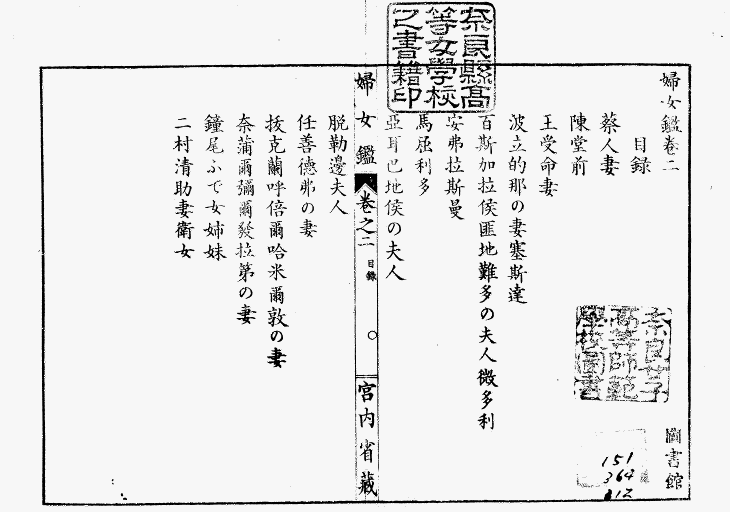 奈良縣高
等女學校
之書籍印
婦女鑑卷二
目録
蔡人妻
陳堂前
王受命妻
波立的那の妻塞斯達
百斯加拉侯匪地難多の夫人微多利
安弗拉斯曼
馬屈利多
亞耳巴地侯の夫人
婦女鑑
卷之二
目録
宮内省藏
脱勒邊夫人
任善德弗の妻
拔克蘭呼倍爾哈米爾敦の妻
奈蒲爾彌爾發拉第の妻
鐘尾ふで女姉妹
二村清助妻衞女
奈良女子
高等師範
學校圖書
圖書館
151
364
212